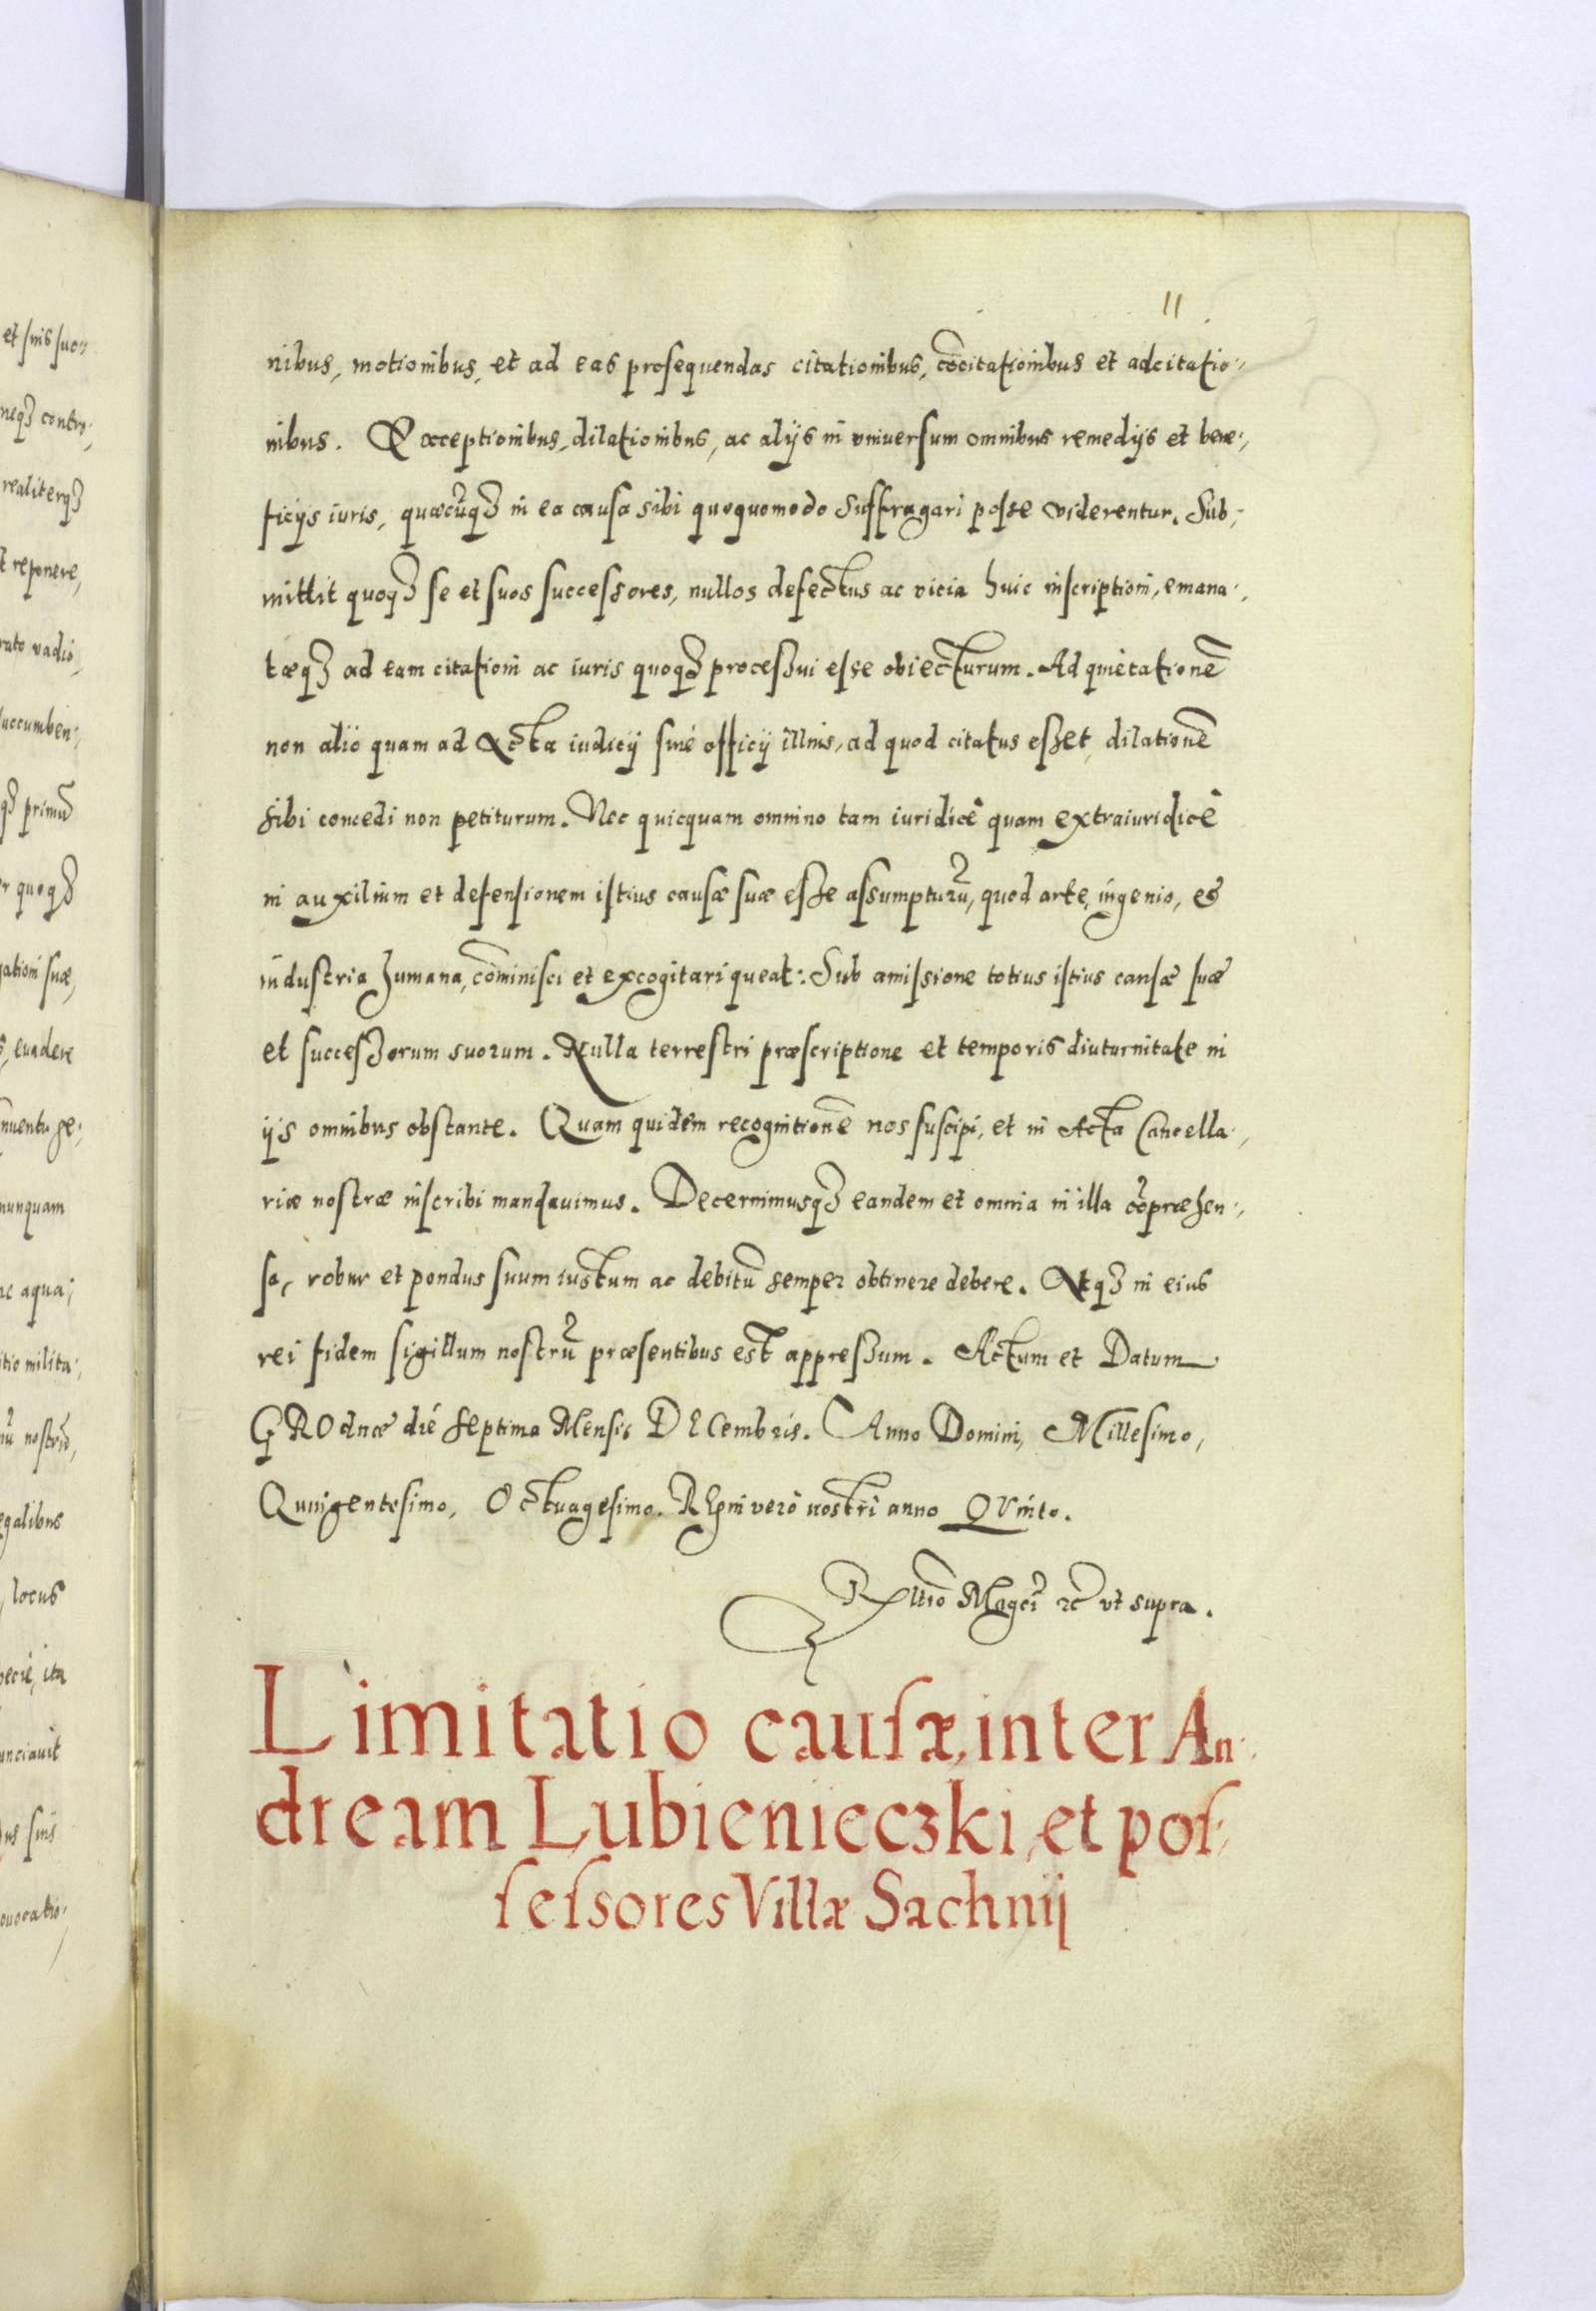 11
nibus, motionibus, et ad eas prosequendas citationibus, cõcitationibus et adcitatio-
nibus. Exceptionibus, dilationibus, ac alijs in vniuersum omnibus remedijs et bene-
ficijs iuris, quæcũq3 in ea causa sibi quoquomodo suffragari posse viderentur. Sub-
mittit quoq3 se et suos successores, nullos defectus ac vicia huic inscriptioni, emana-
tæq3 ad eam citationi ac iuris quoq3 processui esse obiecturum. Ad quietationẽ
non alio quam ad Acta iudicij siue officij illius, ad quod citatus esset, dilationẽ
sibi concedi non petiturum. Nec quicquam omnino tam iuridicê quam extraiuridicê
in auxilium et defensionem istius causæ suæ esse assumpturũ, quod arte, ingenio, et
industria humana, cõminisci et excogitari queat: Sub amissione totius istius causæ suæ
et successorum suorum. Nulla terrestri præscriptione et temporis diuturnitate in
ijs omnibus obstante. Quam quidem recognitionẽ nos suscipi, et in Acta Cancella-
riæ nostræ inscribi mandauimus. Decernimusq3 eandem et omnia in illa cõpræhen-
sa, robur et pondus suum iustum ac debitũ semper obtinere debere. Atq3 in eius
rei fidem sigillum nostrũ præsentibus est appressum. Actum et Datum
GROdnæ dié septima Mensis DECembris. Anno Domini, Millesimo,
Quuigentesimo, Octuagesimo. REgni verò nostri anno QVinto.
Rltio Magci 2c vt supra.
Limitatio causæ, inter An-
dream Lubienieczki, et pos-
sessores Villæ Sachnij
et suis suc-
neq3 contro-
realiterq3
reponere,
vadio,
succumben-
q3 primũ
quoq3
suæ,
euadere
nunquam
aqua-
milita-
nostrũ,
egalibus
locus
ita
unciauit